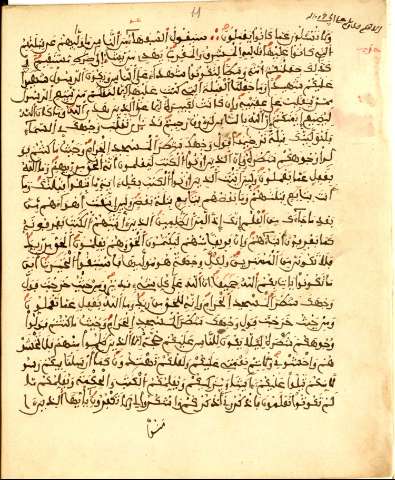 11
ولا تسئلون عما كانوا يعملون سيقول السفهاء من الناس ما وليهم عن قبلتهم
التي كانوا عليها قل لله المشرق والمغرب يهدي من يشاء الى صراط مستقيم و
كذلك جعلنكم امة وسطا لتكونوا شهداء على الناس ويكون الرسول
عليكم شهيدا وما جعلنا القبلة التي كنت عليها الا لنعلم من يتبع الرسول
ممن ينقلب على عقبيه وان كانت لكبيرة الا على الذين هدى الله وما كان الله
ليضيع ايمنكم ان الله بالناس لرءوف رحيم قد نرى تقلب وجهك في السماء
فلنولينك قبلة ترضيها فول وجهك شطر المسجد الحرام وحيث ما كنتم فو
لوا وجوهكم شطره وان الذين اوتوا الكتب ليعلمون انه الحق من ربهم وما الله
بغفل عما يعملون ولئن اتيت الذين اوتوا الكتب بكل ءاية ما تبعوا قبلتك وما
انت بتابع قبلتهم وما بعضهم بتابع قبلة بعض ولئن اتبعت اهواءهم من
بعد ما جاءك من العلم انك اذا لمن الظلمين الذين ءاتينهم الكتب يعرفونه
كما يعرفون ابناءهم وان فريقا منهم ليكتمون الحق وهم يعلمون الحق من ربك
فلا تكونن من الممترين ولكل وجهة هو موليها فاستبقوا الخيرت اين
ما تكونوا يات بكم الله جميعا ان الله على كل شيء قدير ومن حيث خرجت فول
وجهك شطر المسجد الحرام وانه للحق من ربك وما الله بغفل عما تعملون
ومن حيث خرجت فول وجهك شطر المسجد الحرام وحيث ما كنتم فولوا
وجوهكم شطره ليلا يكون للناس عليكم حجة الا الذين ظلموا منهم فلا تخشو
هم واخشوني ولاتم نعمتي عليكم ولعلكم تهتدون كما ارسلنا فيكم رسو
لا منكم يتلوا عليكم ءايتنا ويزكيكم ويعلمكم الكتب والحكمة ويعلمكم ما
لم تكونوا تعلمون فاذكروني اذكركم واشكروا لي ولا تكفرون يايها الذين
ءامنوا